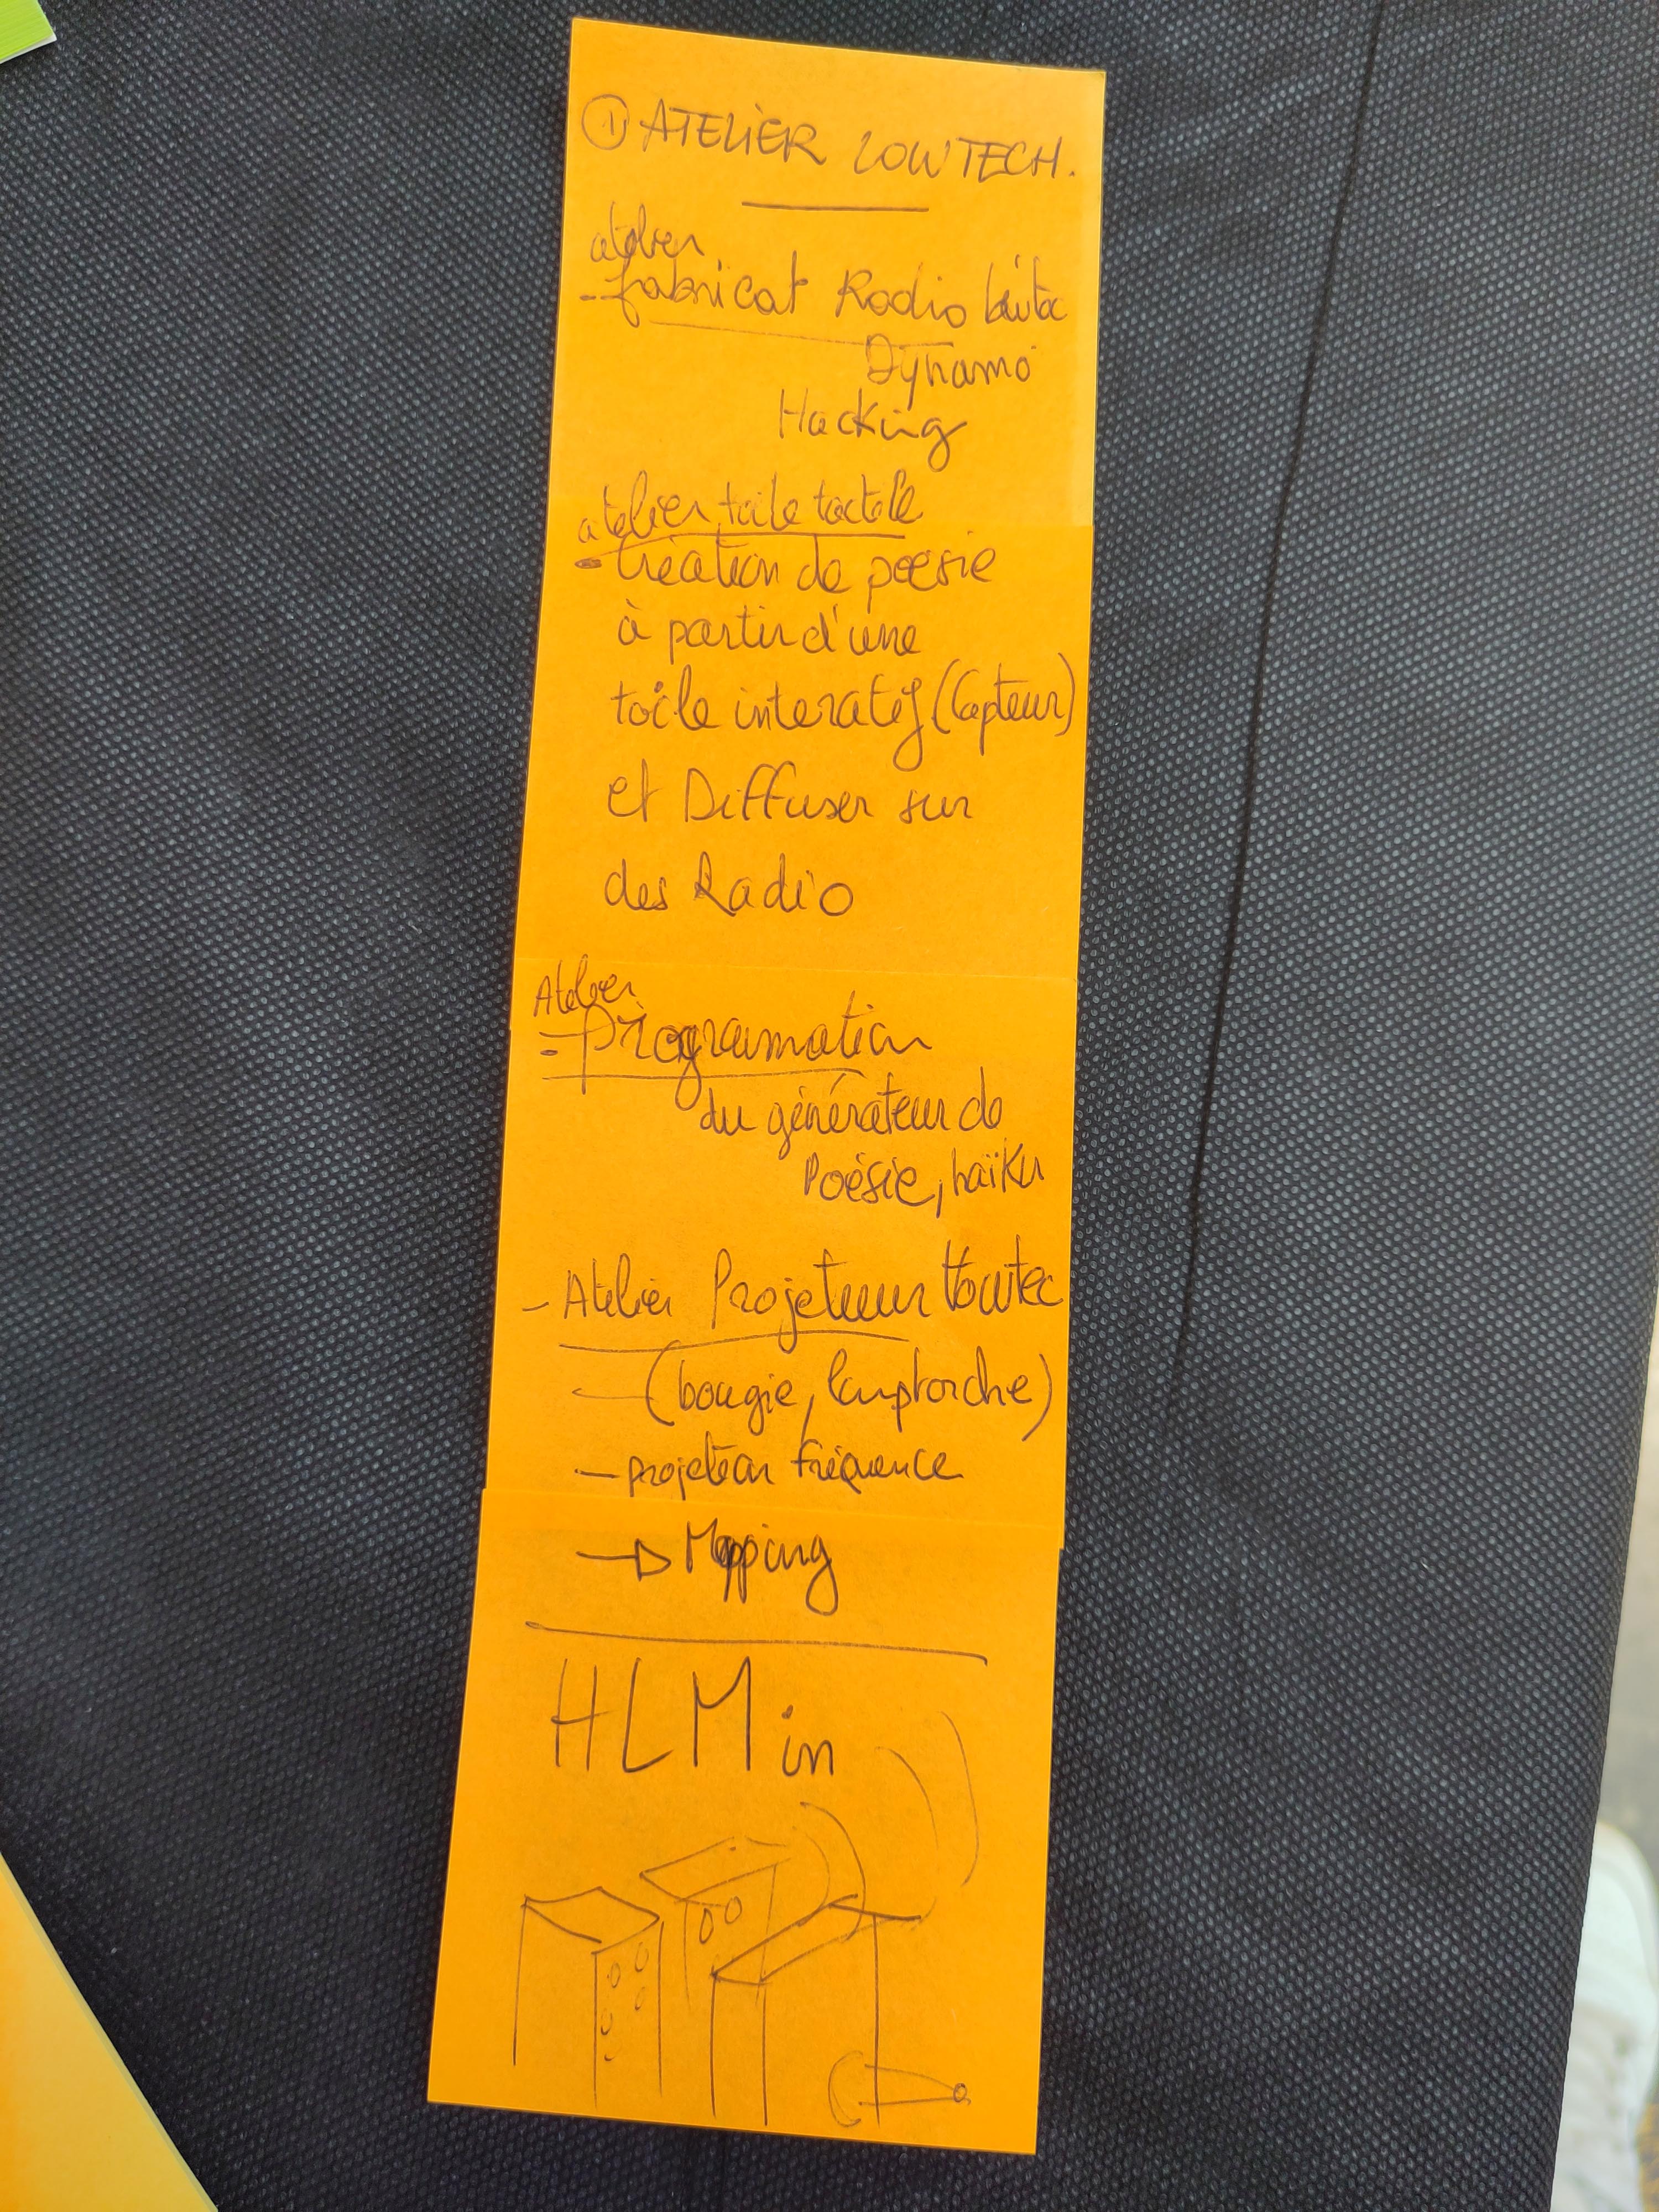 ① ATELIER LOWTECH.
atelier
- fabricat Radio
Dynamo
Hacking
atelier toile tactile
- Création de poesie
à partir d'une
toile interatif (Capteur)
et Diffuser sur
des Radio
Atelier
- Programmation
du générateur de
Poésie, haïku
- Atelier Projeteur
(bougie, lamptorche)
- projeteur fréquence
→ Mapping
HLM in